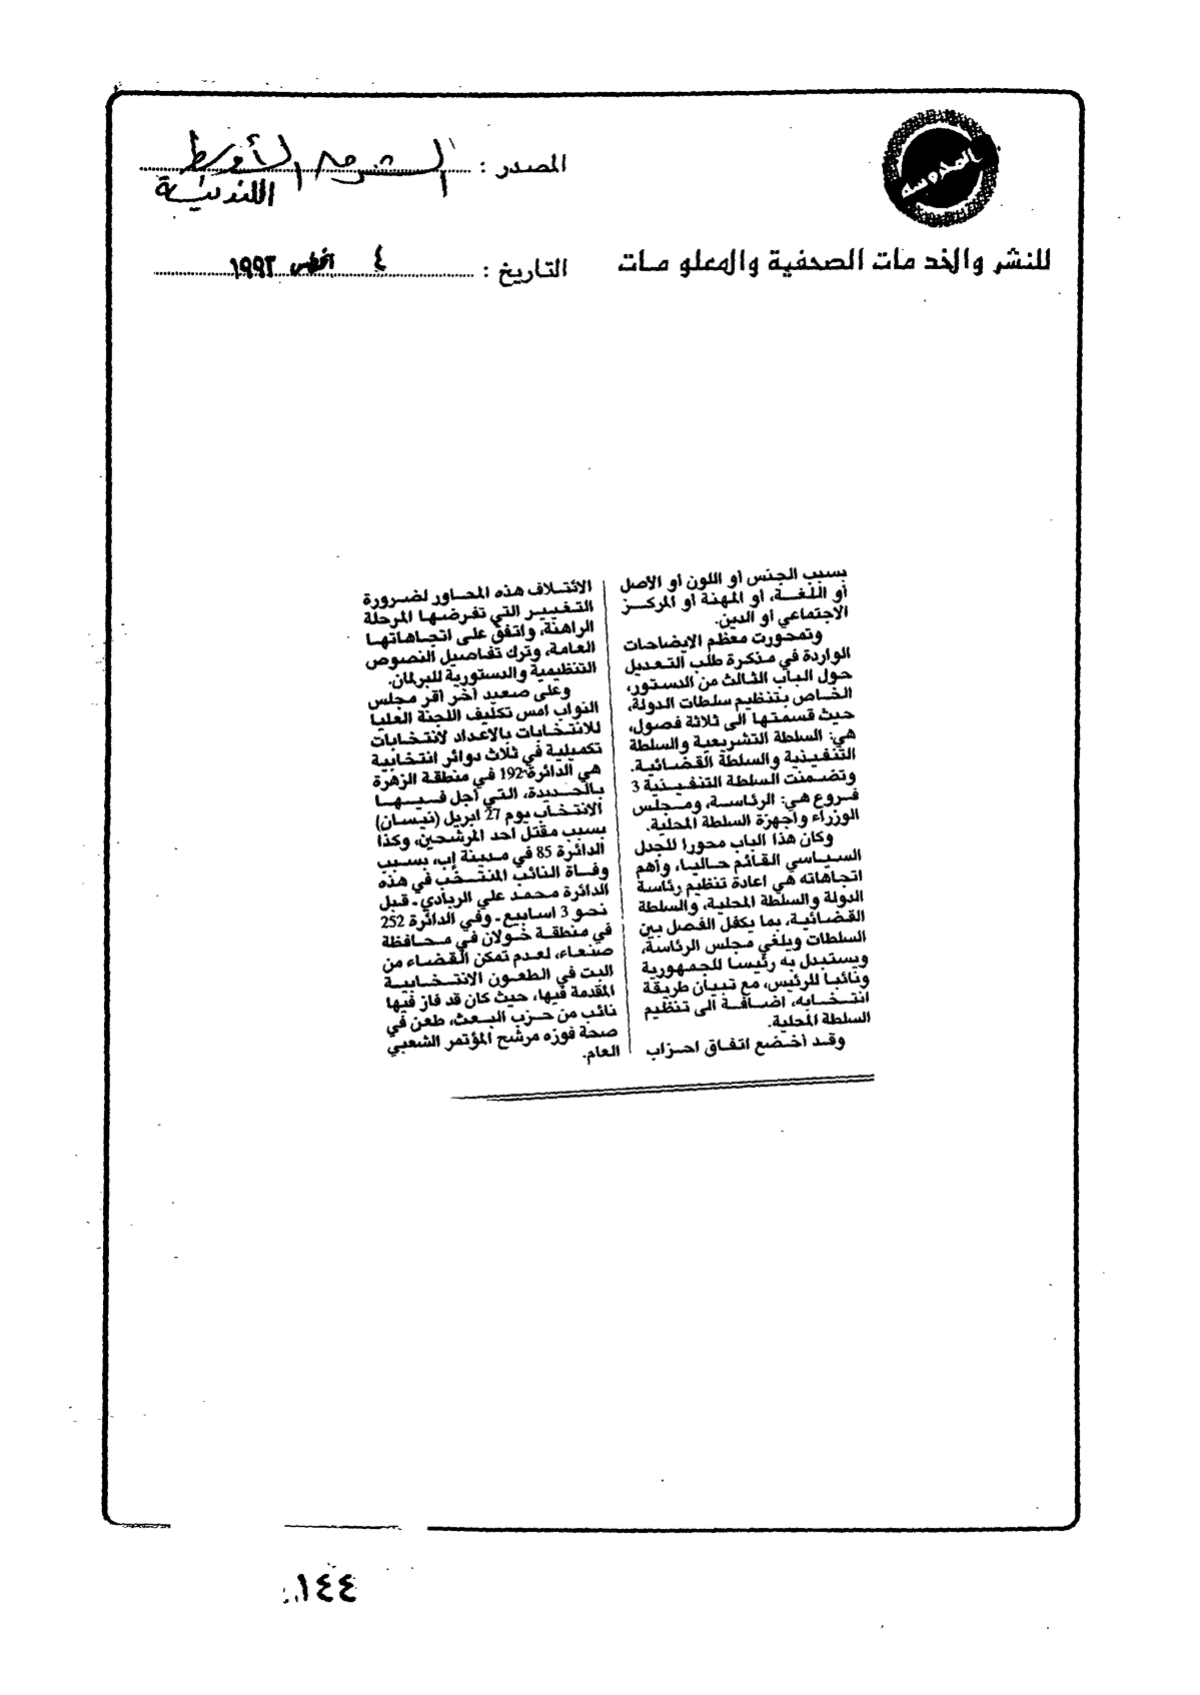 المحروسة
للنشر والخدمات الصحفية والمعلومات
المصدر : الشرق الأوسط
اللندنية
التاريخ : ٤ أغسطس ١٩٩٣
بسبب الجنس أو اللون أو الأصل
أو اللغة، أو المهنة أو المركز
الاجتماعي أو الدين.
وتمحورت معظم الإيضاحات
الواردة في مذكرة طلب التعديل
حول الباب الثالث من الدستور،
الخاص بتنظيم سلطات الدولة،
حيث قسمتها الى ثلاثة فصول،
هي: السلطة التشريعية والسلطة
التنفيذية والسلطة القضائية.
وتضمنت السلطة التنفيذية 3
فروع هي: الرئاسة، ومجلس
الوزراء وأجهزة السلطة المحلية.
وكان هذا الباب محورا للجدل
السياسي القائم حاليا، وأهم
اتجاهاته هي اعادة تنظيم رئاسة
الدولة والسلطة المحلية، والسلطة
القضائية، بما يكفل الفصل بين
السلطات ويلغي مجلس الرئاسة،
ويستبدل به رئيسا للجمهورية
ونائبا للرئيس، مع تبيان طريقة
انتخابه، اضافة الى تنظيم
السلطة المحلية.
وقد أخضع اتفاق احزاب
الائتلاف هذه المحاور لضرورة
التغيير التي تفرضها المرحلة
الراهنة، واتفق على اتجاهاتها
العامة، وترك تفاصيل النصوص
التنظيمية والدستورية للبرلمان.
وعلى صعيد آخر اقر مجلس
النواب امس تكليف اللجنة العليا
للانتخابات بالإعداد لانتخابات
تكميلية في ثلاث دوائر انتخابية
هي الدائرة 192 في منطقة الزهرة
بالحديدة، التي أجل فيها
الانتخاب يوم 27 ابريل (نيسان)
بسبب مقتل احد المرشحين، وكذا
الدائرة 85 في مدينة إب، بسبب
وفاة النائب المنتخب في هذه
الدائرة محمد علي الربادي ـ قبل
نحو 3 اسابيع ـ وفي الدائرة 252
في منطقة خولان في محافظة
صنعاء، لعدم تمكن القضاء من
البت في الطعون الانتخابية
المقدمة فيها، حيث كان قد فاز فيها
نائب من حزب البعث، طعن في
صحة فوزه مرشح المؤتمر الشعبي
العام.
١٤٤